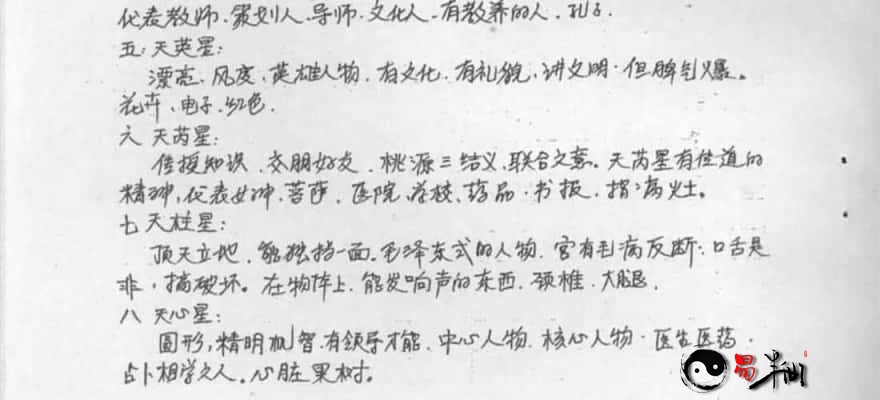 代表教师、策划人、导师、文化人、有教养的人、孔子.
五:天英星:
漂亮、风度、英雄人物、有文化、有礼貌、讲文明·但脾气爆。
花卉、电子、红色.
六 天芮星:
传授知识、交朋好友、桃源三结义、联合之意。天芮星有传道的
精神,代表女神、菩萨、医院、学校、药品·书报、指:病灶。
七 天柱星:
顶天立地、能独挡一面。毛泽东式的人物、宫有毛病反断:口舌是
非,搞破坏。在物体上、能发响声的东西、颈椎、大腿.
八 天心星:
圆形,精明机智、有领导才能、中心人物、核心人物·医生医药·
占卜相学之人。心脏果树。
易半仙